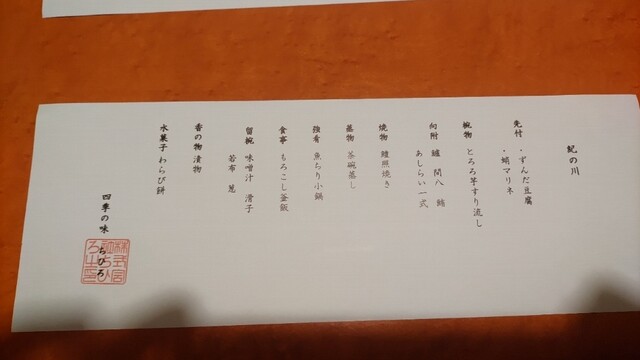 紀の川
先付 ・ずんだ豆腐
・蛸マリネ
椀物 とろろ芋すり流し
向附 鱸 間八 鮪
あしらい一式
焼物 鰆照焼き
蒸物 茶碗蒸し
強肴 魚ちり小鍋
食事 もろこし釜飯
留椀 味噌汁 滑子
若布 葱
香の物 漬物
水菓子 わらび餅
四季の味 ちひろ